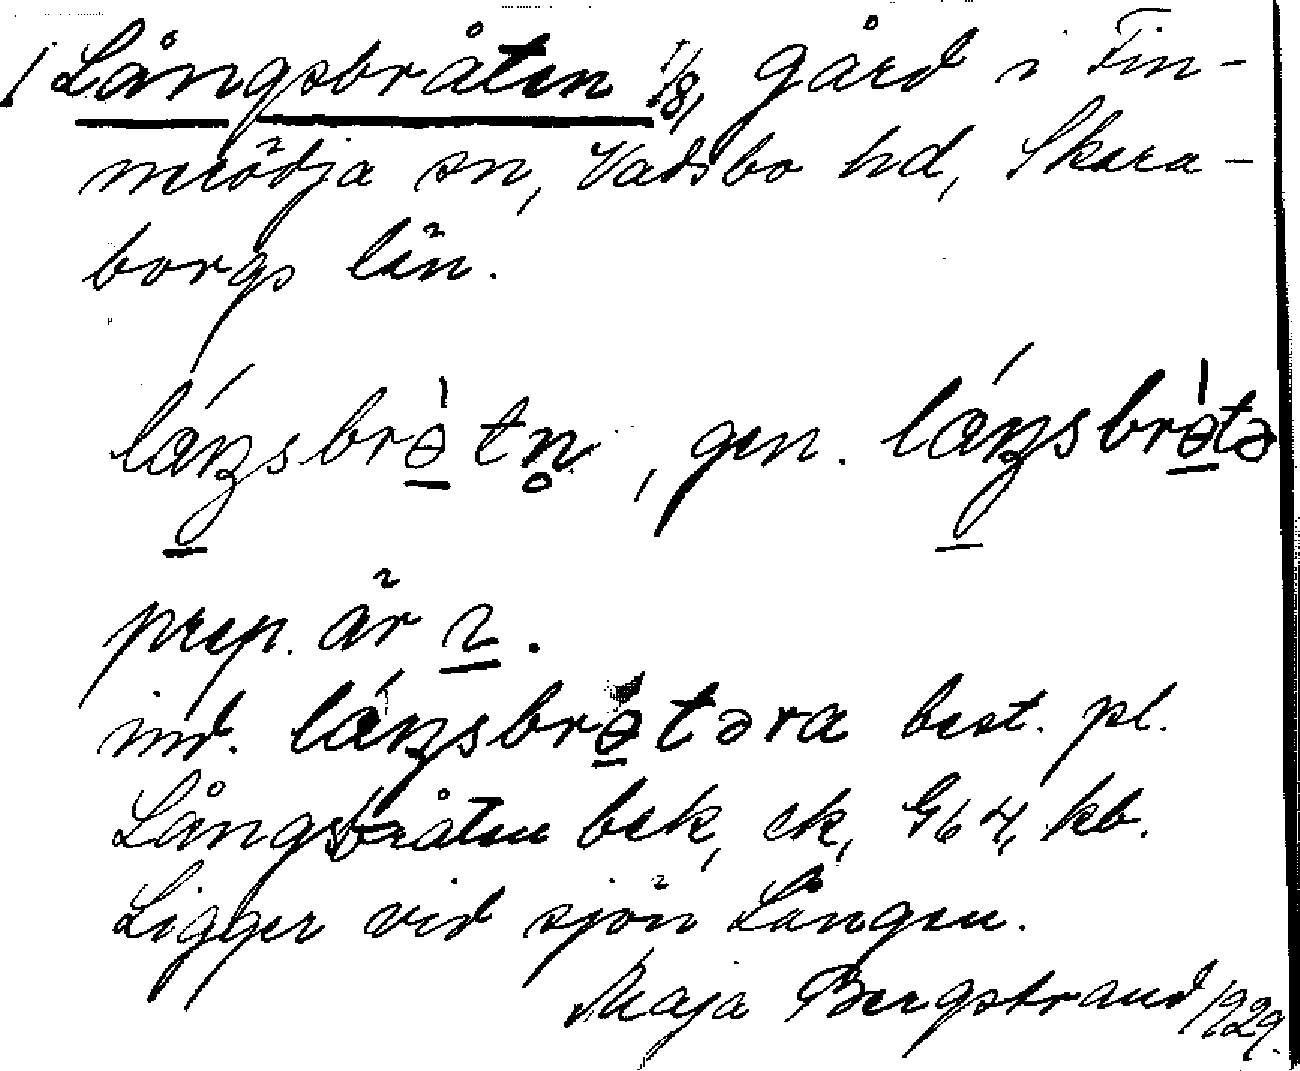 1 Långsbråten 1/8, gård i Fin-
nerödja sn, Vadsbo hd, Skara-
borgs län.
láŋsbrə̀tn̥, gen. láŋsbrə̀tə
prep. är ɪ.
inv. láŋsbrə̀təra best. pl.
Långsbråten bek, ek, G64, kb.
Ligger vid sjön Lången.
Maja Bergstrand 1929.